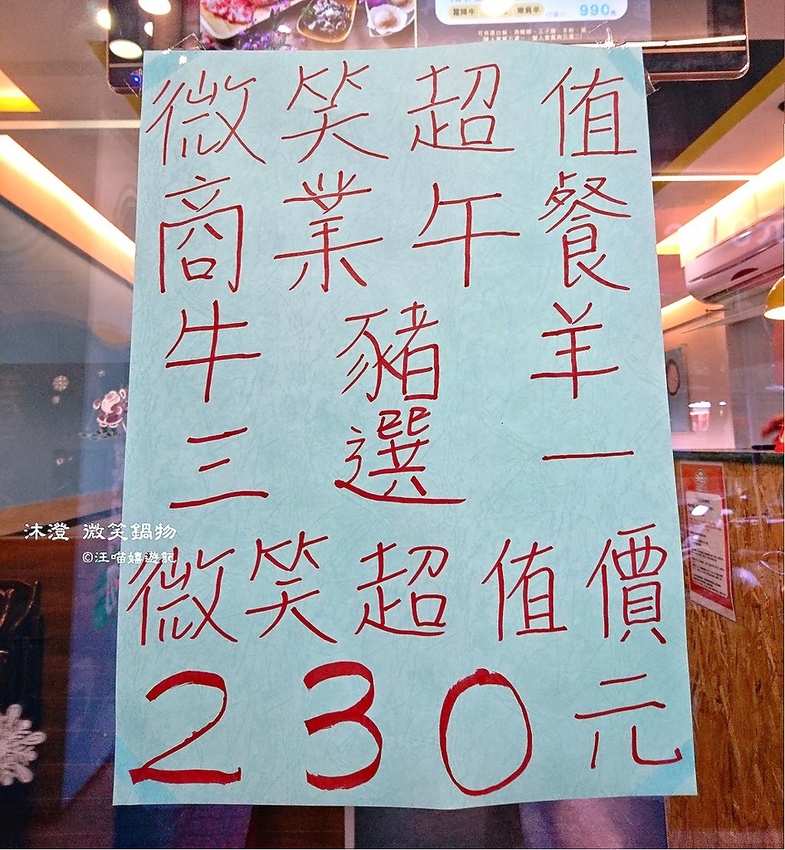 990元
微笑超值
商業午餐
牛 豬 羊
三 選 一
微笑超值價
230元
沐澄 微笑鍋物
©汪喵嬉遊記